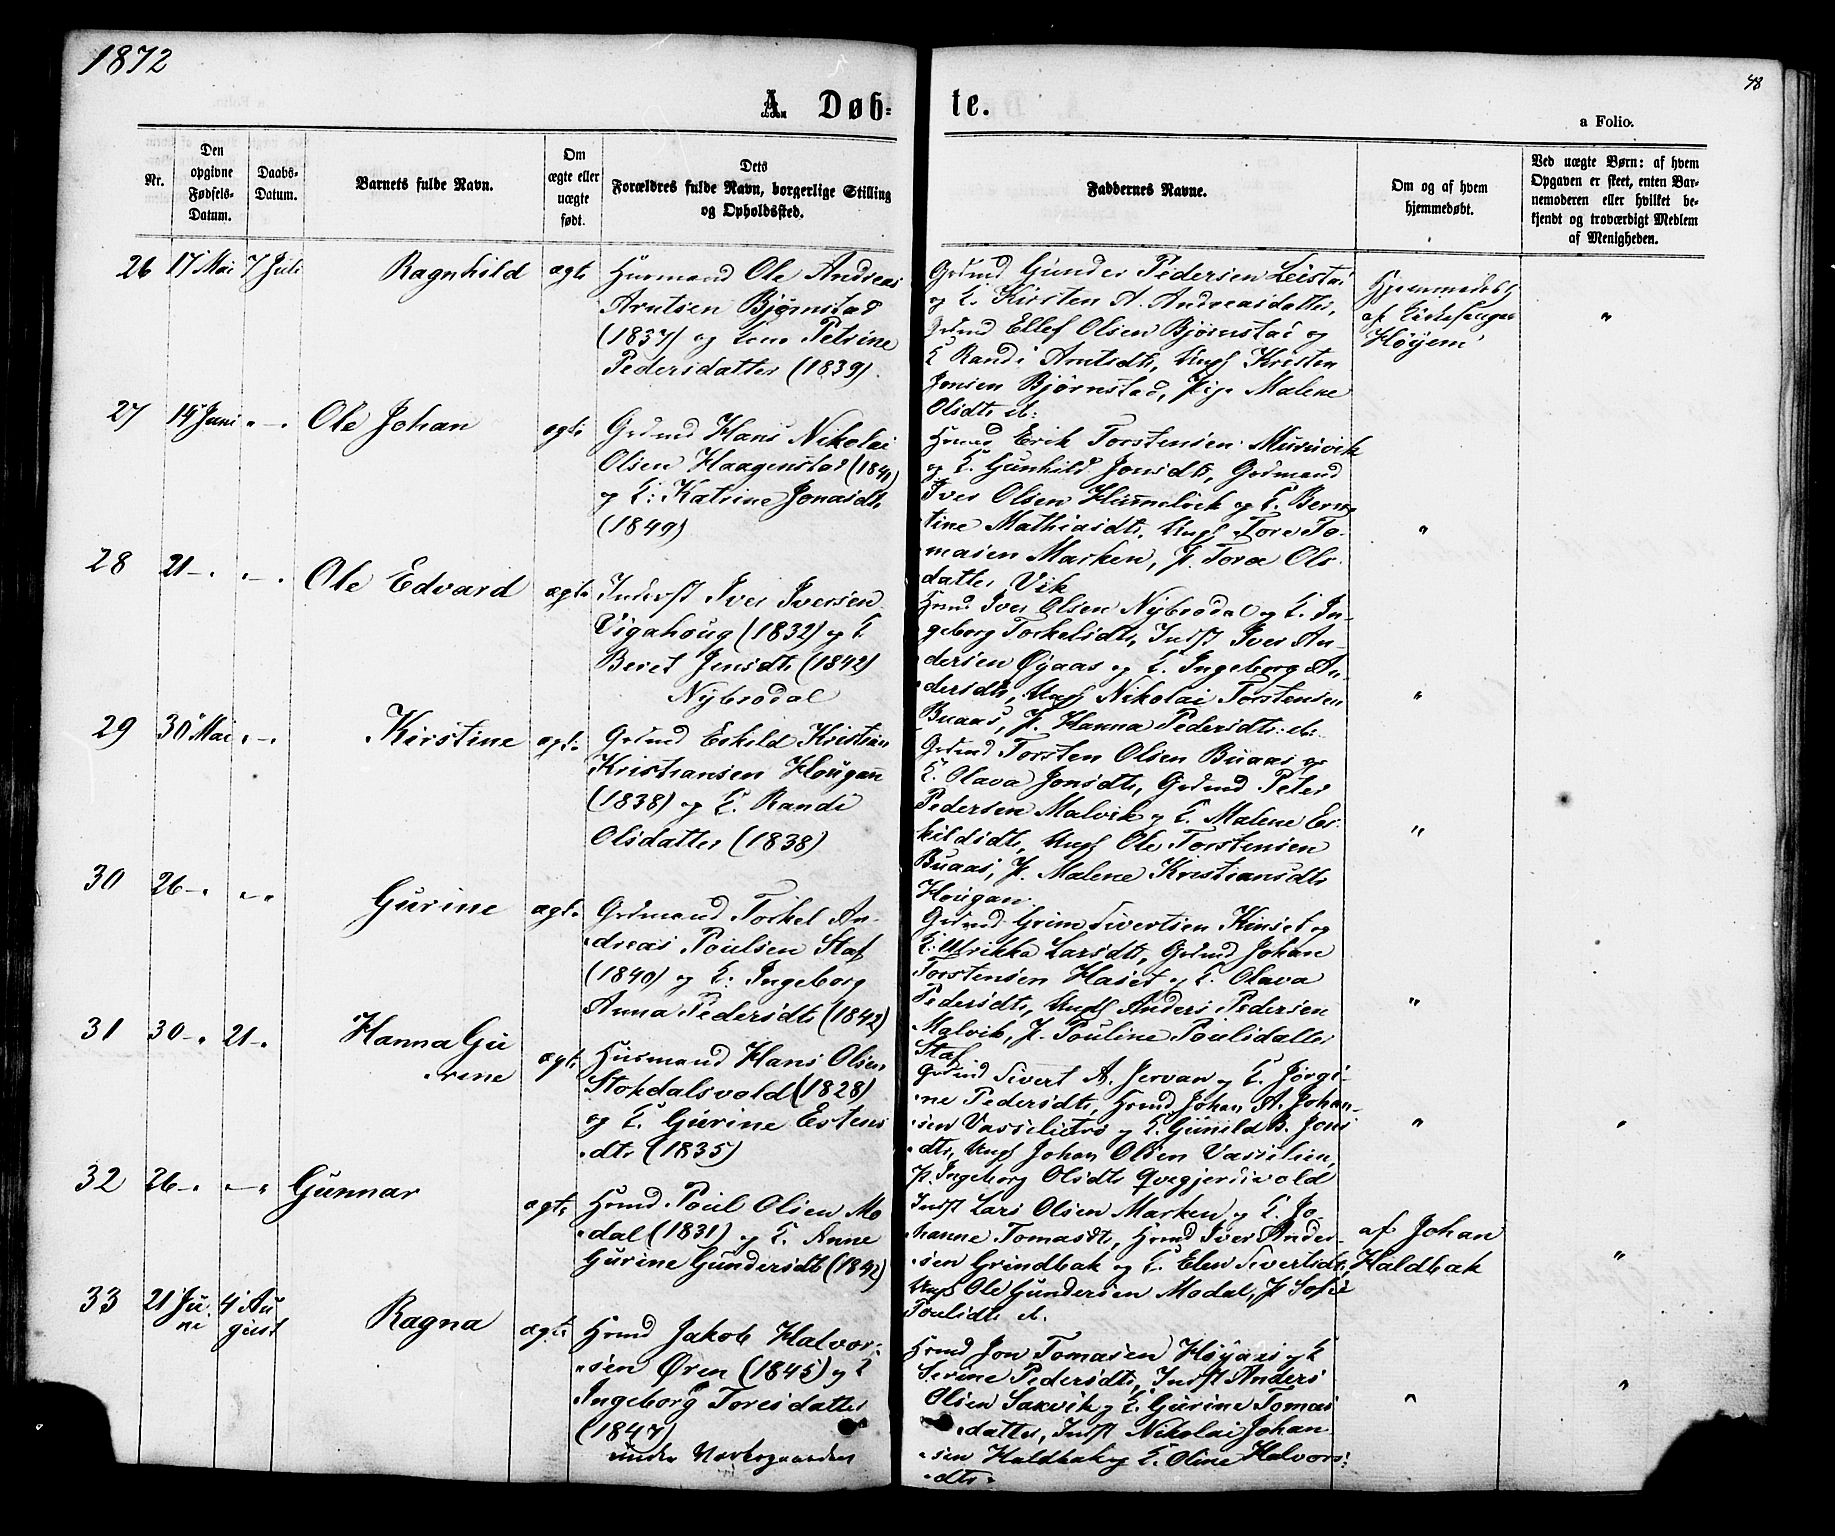 1872
48
A. Døb-
te.
a Folio.
Nr.
Den
opgivne
Fødsels-
Datum.
Daabs-
Datum.
Barnets fulde Navn.
Om
ægte eller
uægte
født.
Dets
Forældres fulde Navn, borgerlige Stilling
og Opholdssted.
Faddernes Navne.
Om og af hvem
hjemmedøbt.
Ved uægte Børn: af hvem
Opgaven er skeet, enten Bar-
nemoderen eller hvilket be-
kjendt og troværdigt Medlem
af Menigheden.
26 17 Mai 7 Juli Ragnhild ægte
Husmand Ole Andreas
Arntsen Bjørnstad
(1837) og Kone Petrine
Pedersdatter (1839).
Grdmd Gunder Pedersen Leistad
og K. Kirsten A. Andreasdatter,
Grdmd Ellef Olsen Bjørnstad og
K Randi Arntsdtr, Ungk Kristen
Jonsen Bjørnstad, Pige Malene
Olsdtr ib:
Hjemmedøbt
af
Høyem
"
27 14 Juni " — " Ole Johan ægte
Grdmd Hans Nikolai
Olsen Haagenstad (1840)
og K: Katrine Jonasdtr
(1849)
Hsmd Erik Torstensen Muruvik
og K. Gunhild Jonsdtr, Grdmand
Iver Olsen Hummelvik og K. Bern-
tine Mathiasdtr, Ungk Tore To-
masen Marken, P. Torø Ols-
datter Vik
"
28 21 — " " — " Ole Edvard ægte
Inderst Iver Iversen
Vigahoug (1832) og K
Beret Jensdtr (1842)
Nybrodal
Hsmd Iver Olsen Nybrodal og K. In-
geborg Torkelsdtr, Indst Iver An-
dersen Øyaas og K. Ingeborg An-
dersdtr, Ungk Nikolai Torstensen
Buaas, P. Hanna Pedersdtr ib:
"
29 30 Mai " — " Kirstine ægte
Grdmd Eskild Kristian
Kristiansen Hougan
(1838) og K. Randi
Olsdatter (1838)
Grdmd Torsten Olsen Buaas og
K. Olava Jonsdtr, Grdmd Peter
Pedersen Malvik og K. Malene Es-
kildsdtr, Ungk Ole Torstensen
Buaas, P. Malene Kristiansdtr
Hougan.
"
30 26 — " " " Gurine ægte
Grdmand Torkel An-
dreas Poulsen Staf
(1840) og K: Ingeborg
Anna Pedersdtr (1842)
Grdmd Grim Sivertsen Kinset og
K: Ulrikka Larsdtr, Grdmd Johan
Torstensen Haset og K. Olava
Pedersdtr, Ungk Anders Pedersen
Malvik, P. Pouline Poulsdatter
Staf
"
31 30 — " 21 — " Hanna Gu
rine ægte
Husmand Hans Olsen
Stokdalsvold (1828)
og K. Gurine Estens
dtr (1835)
Grdmd Sivert A. Jervan og K. Jørgi-
ne Pedersdtr, Hsmd Johan A. Johan-
sen Vasselietrø og K. Gunild B. Jons
dtr, Ungk Johan Olsen Vasselien,
P. Ingeborg Olsdtr
" "
32 26 — " " — " Gunnar ægte
Hsmd Poul Olsen Mo
dal (1831) og K. Anne
Gurine Gundersdtr (1842)
Indst Lars Olsen Marken og K. Jo-
hanne Tomasdtr, Hsmd Iver Ander-
sen Grindbak og K. Elen Sivertsdtr,
Ungk Ole Gundersen Modal, P Sofie
Poulsdtr ib.
af Johan
Haldbak
"
33 21 Ju-
ni 4 Au
gust Ragna ægte
Hsmd Jakob Halvor-
sen Øren (1845) og K
Ingeborg Toresdatter
(1847)
under
Hsmd Jon Tomasen Høyaas og K
Serine Pedersdtr, Indst Anders
Olsen Saxvik og K. Gurine Tomas
datter, Indst Nikolai Johan-
sen Haldbak og K. Oline Halvors-
dtr.
" "